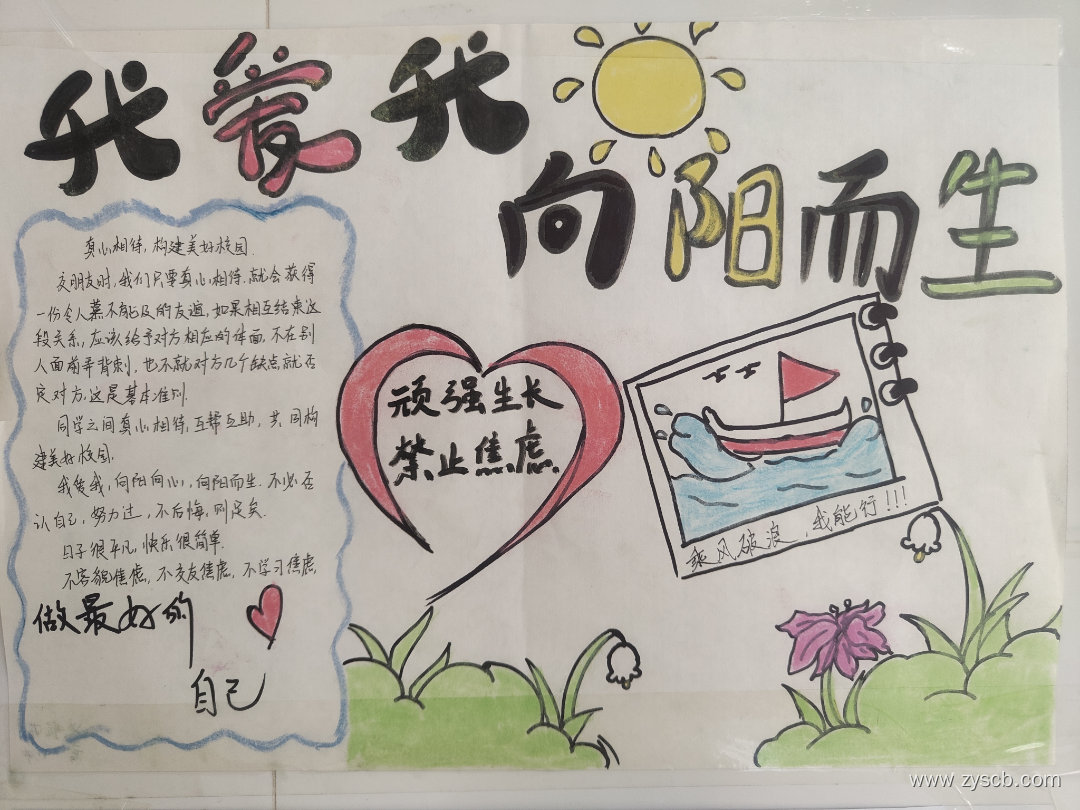 我爱我
向阳而生
真心相待，构建美好校园.
交朋友时，我们只要真心相待，就会获得
一份令人慕不能及的友谊，如果相互结束这
段关系，应该给予对方相应的体面，不在别
人面前弄背刺，也不就对方几个缺点就否
定对方.这是基本准则.
同学之间真心相待，互帮互助，共同构
建美好校园.
我爱我，向阳向心，向阳而生.不必否
认自己，努力过，不后悔，则足矣.
日子很平凡，快乐很简单.
不容貌焦虑，不交友焦虑，不学习焦虑，
做最好的
自己
顽强生长
禁止焦虑
乘风破浪，我能行!!!
www.zyscb.com